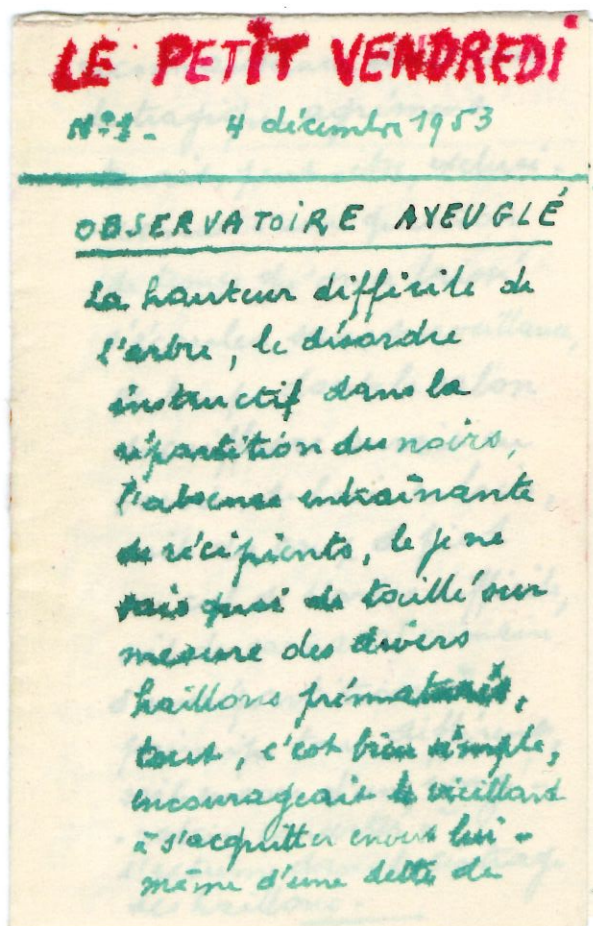 LE PETIT VENDREDI
N°1- 4 décembre 1953
OBSERVATOIRE AVEUGLÉ
La hauteur difficile de
l'arbre, le désordre
instructif dans la
répartition des noirs,
l'absence entraînante
de récipients, le je ne
sais quoi de taillé sur
mesure des divers
haillons prématurés,
tout, c'est bien simple,
encourageait le vieillard
à s'acquitter envers lui-
même d'une dette de